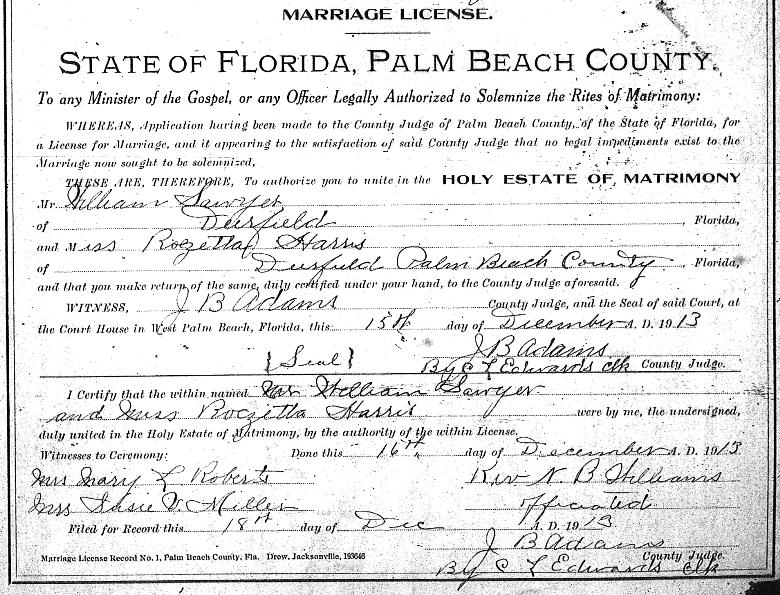 MARRIAGE LICENSE.
STATE OF FLORIDA, PALM BEACH COUNTY.
To any Minister of the Gospel, or any Officer Legally Authorized to Solemnize the Rites of Matrimony:
WHEREAS, Application having been made to the County Judge of Palm Beach County, of the State of Florida, for
a License for Marriage, and it appearing to the satisfaction of said County Judge that no legal impediments exist to the
Marriage now sought to be solemnized,
THESE ARE, THEREFORE, To authorize you to unite in the HOLY ESTATE OF MATRIMONY
Mr. William Sawyer
of Deerfield, Florida,
and Miss Rozetta Harris
of Deerfield Palm Beach County, Florida,
and that you make return of the same, duly certified under your hand, to the County Judge aforesaid.
WITNESS, J B Adams County Judge, and the Seal of said Court, at
the Court House in West Palm Beach, Florida, this 15th day of December A. D. 1913
J B Adams
{Seal} By C L Edwards clk County Judge.
I Certify that the within named Mr William Sawyer
and Miss Rozetta Harris were by me, the undersigned,
duly united in the Holy Estate of Matrimony, by the authority of the within License.
Witnesses to Ceremony: Done this 16th day of December A. D. 1913
Mrs Mary L Roberts Rev N. B Williams
Mrs Susie V. Miller officiated
Filed for Record this 18th day of Dec A. D. 1913
J B Adams
Marriage License Record No. 1, Palm Beach County, Fla. Drew, Jacksonville, 193646 County Judge.
By C L Edwards Clk